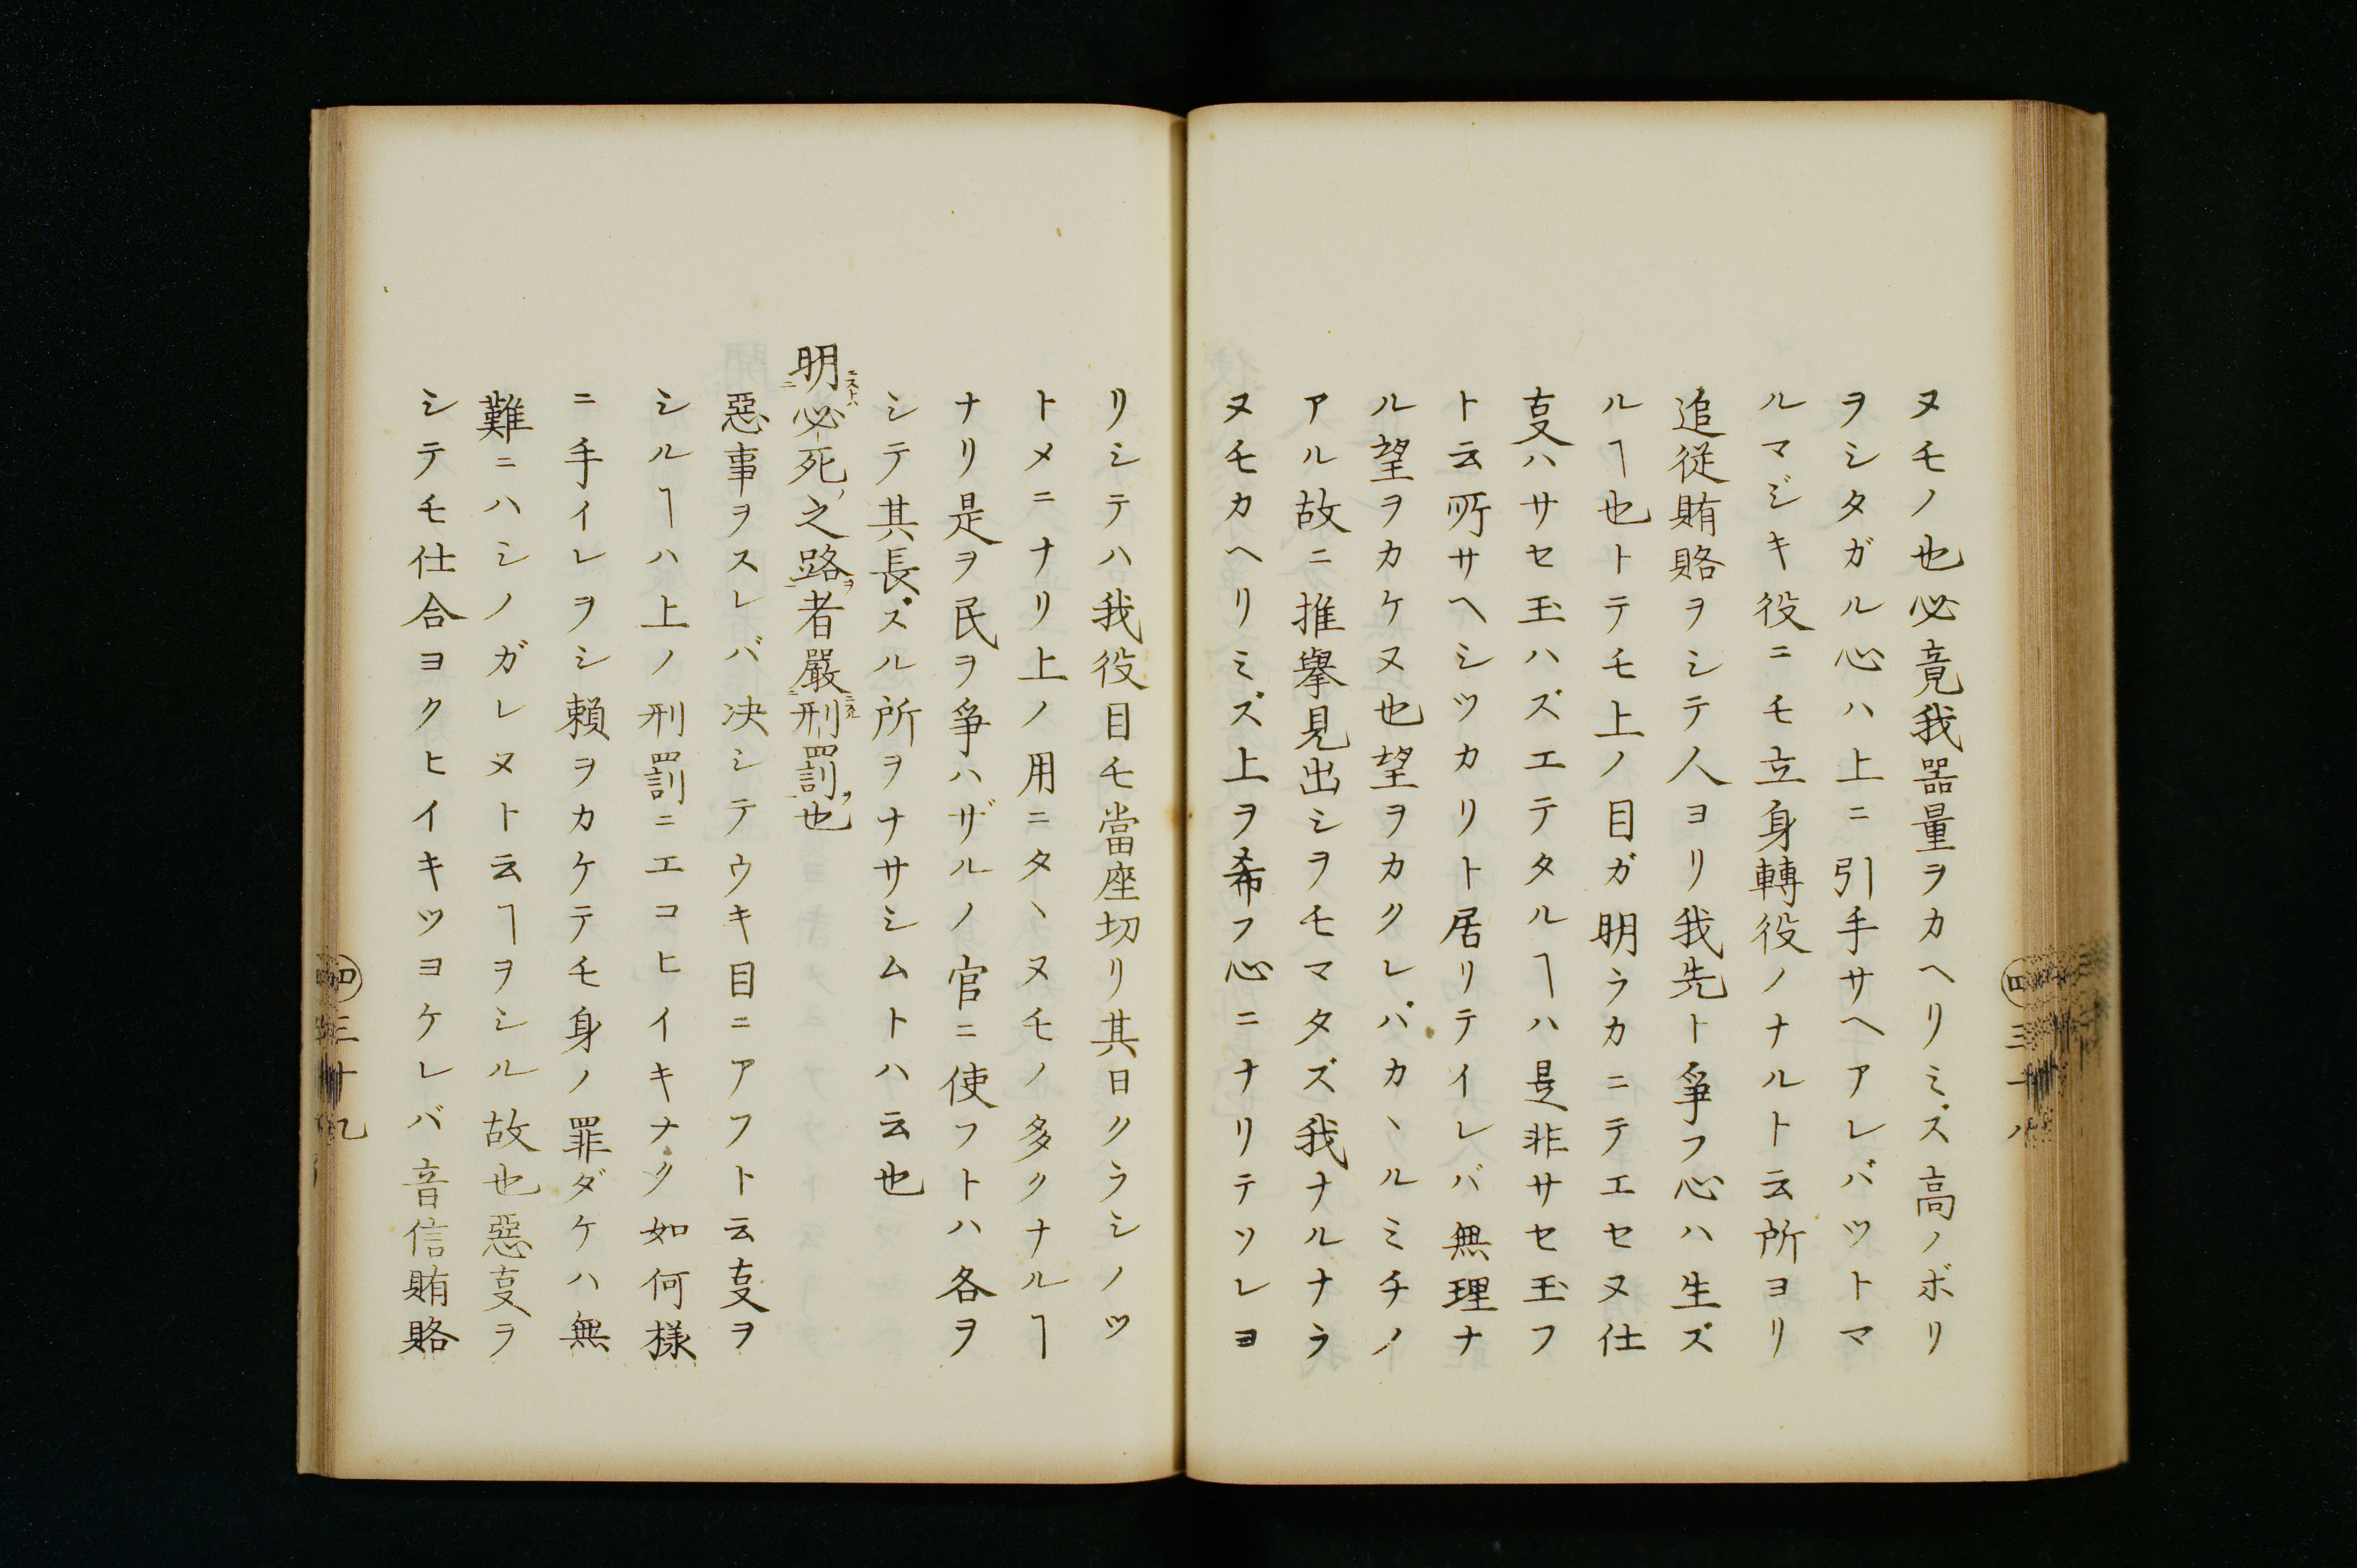 ヌモノ也必竟我器量ヲカヘリミズ高ノボリ
ヲシタガル心ハ上ニ引手サヘアレバツトマ
ルマジキ役ニモ立身轉役ノナルト云所ヨリ
追従賄賂ヲシテ人ヨリ我先ト爭フ心ハ生ズ
ルヿ也トテモ上ノ目ガ明ラカニテエセヌ仕
叓ハサセ玉ハズエテタルヿハ是非サセ玉フ
ト云所サヘシツカリト居リテイレバ無理ナ
ル望ヲカケヌ也望ヲカクレバカヽルミチノ
アル故ニ推擧見出シヲモマタズ我ナルナラ
ヌモカヘリミズ上ヲ希フ心ニナリテソレヨ
四 三十八
リシテハ我役目モ當座切リ其日クラシノツ
トメニナリ上ノ用ニタヽヌモノ多クナルヿ
ナリ是ヲ民ヲ爭ハザルノ官ニ使フトハ各ヲ
シテ其長ズル所ヲナサシムトハ云也
明ニストハ二必死ノ之路ヲ一者嚴ニスル二刑罰ヲ一也
惡事ヲスレバ决シテウキ目ニアフト云叓ヲ
シルヿハ上ノ刑罰ニエコヒイキナク如何様
ニ手イレヲシ賴ヲカケテモ身ノ罪ダケハ無
難ニハシノガレヌト云ヿヲシル故也惡叓ヲ
シテモ仕合ヨクヒイキツヨケレバ音信賄賂
四 三十九